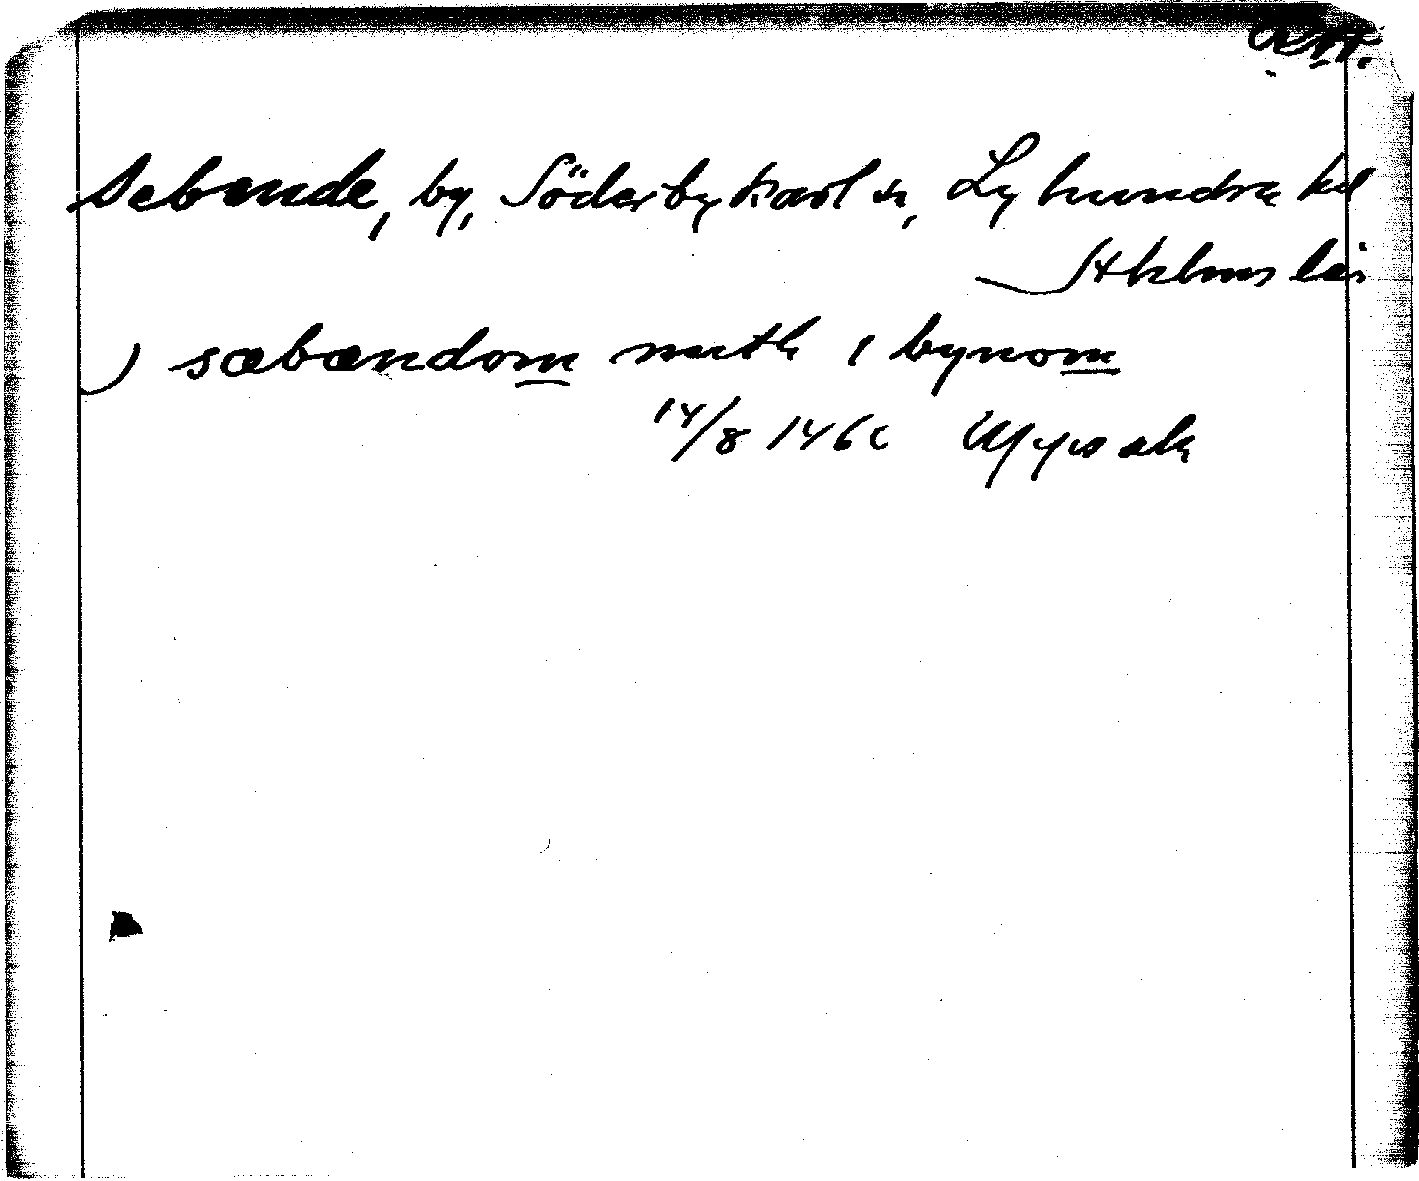 Sebende, by, Söderbykarl sn, Lyhundra hd
Sthlms län
) sæbændom midh i bynom
14/8 146 Upsala